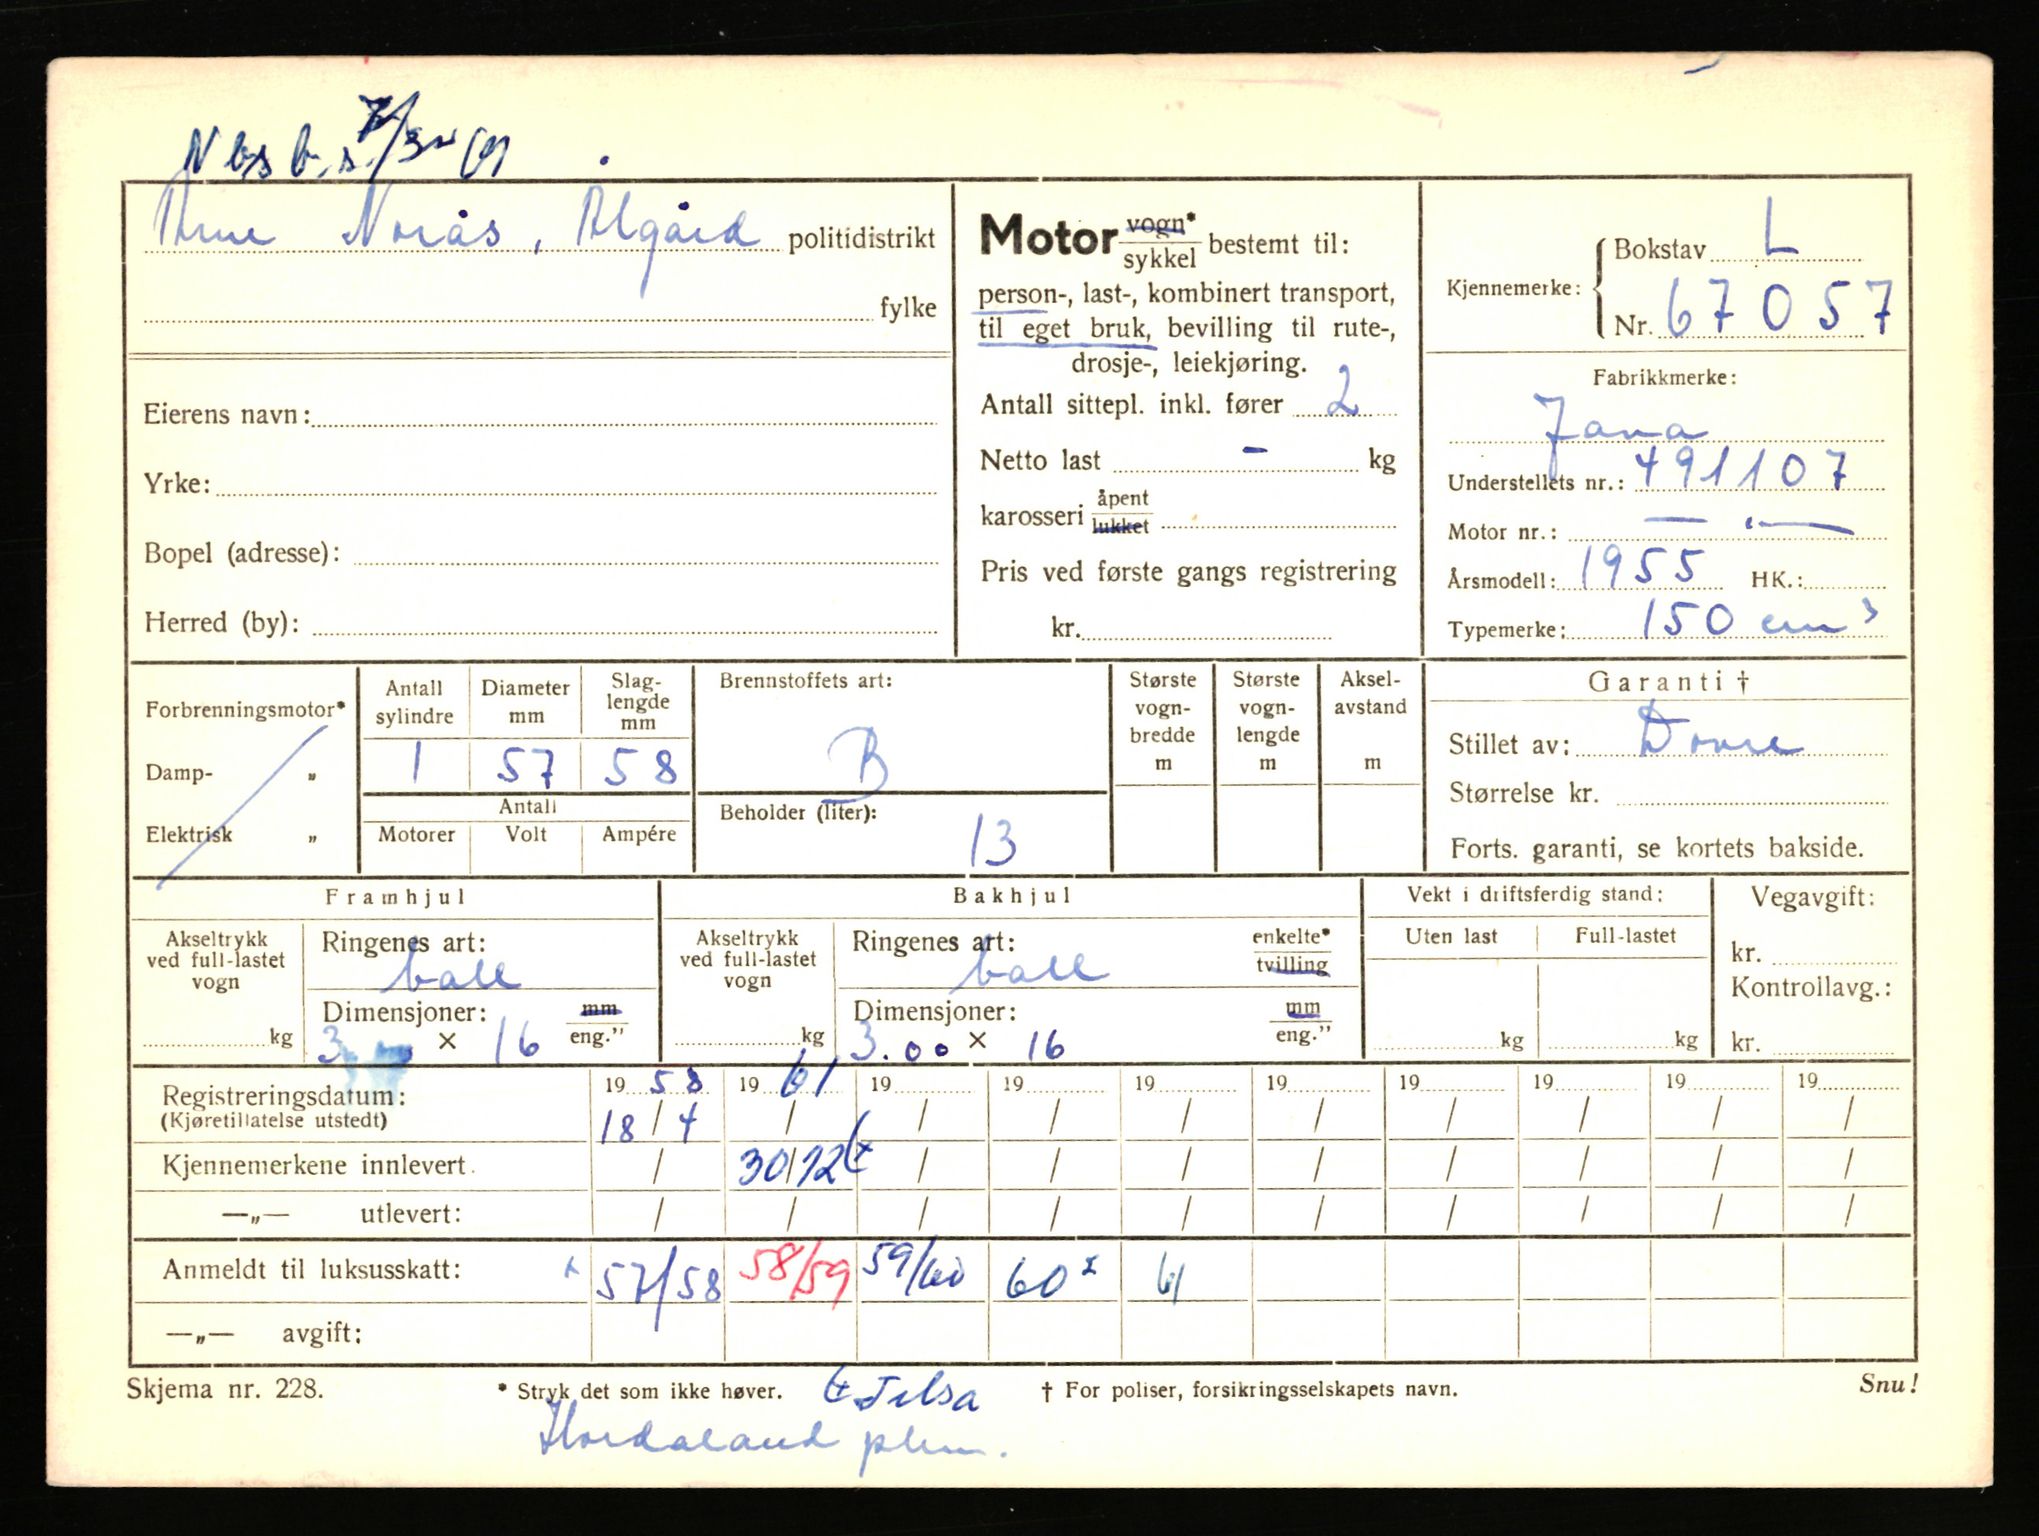 Arne Norås, Ålgård politidistrikt
fylke
Eierens navn:
Yrke:
Bopel (adresse):
Herred (by):
Motor vogn* sykkel bestemt til:
person-, last-, kombinert transport,
til eget bruk, bevilling til rute-,
drosje-, leiekjøring.
Antall sittepl. inkl. fører 2
Netto last - kg
karosseri åpent lukket
Pris ved første gangs registrering
kr.
Kjennemerke: Bokstav L
Nr. 67057
Fabrikkmerke:
Jawa
Understellets nr.: 491107
Motor nr.: — —
Årsmodell: 1955 HK.:
Typemerke: 150 cm³
Forbrenningsmotor*
Damp- „
Elektrisk „
Antall sylindre Diameter mm Slag-lengde mm
1 57 58
Antall
Motorer Volt Ampére
Brennstoffets art:
B
Beholder (liter):
13
Største vogn-bredde m
Største vogn-lengde m
Aksel-avstand m
Garanti †
Stillet av: Dovre
Størrelse kr.
Forts. garanti, se kortets bakside.
Framhjul
Akseltrykk ved full-lastet vogn kg
Ringenes art:
ball
Dimensjoner: mm eng."
3.00 × 16
Bakhjul
Akseltrykk ved full-lastet vogn kg
Ringenes art: enkelte* tvilling
ball
Dimensjoner: mm eng."
3.00 × 16
Vekt i driftsferdig stand:
Uten last Full-lastet
kg kg
Vegavgift:
kr.
Kontrollavg.:
kr.
Registreringsdatum: 19 58 19 61 19 19 19 19 19 19 19 19
(Kjøretillatelse utstedt) 18 / 4 / / / / / / / / /
Kjennemerkene innlevert. / 30/12 / / / / / / / /
—„— utlevert: / / / / / / / / / /
Anmeldt til luksusskatt: x 57/58 58/59 59/60 60 x 61
—„— avgift:
Skjema nr. 228. * Stryk det som ikke høver. † For poliser, forsikringsselskapets navn. Snu!
Hordaland